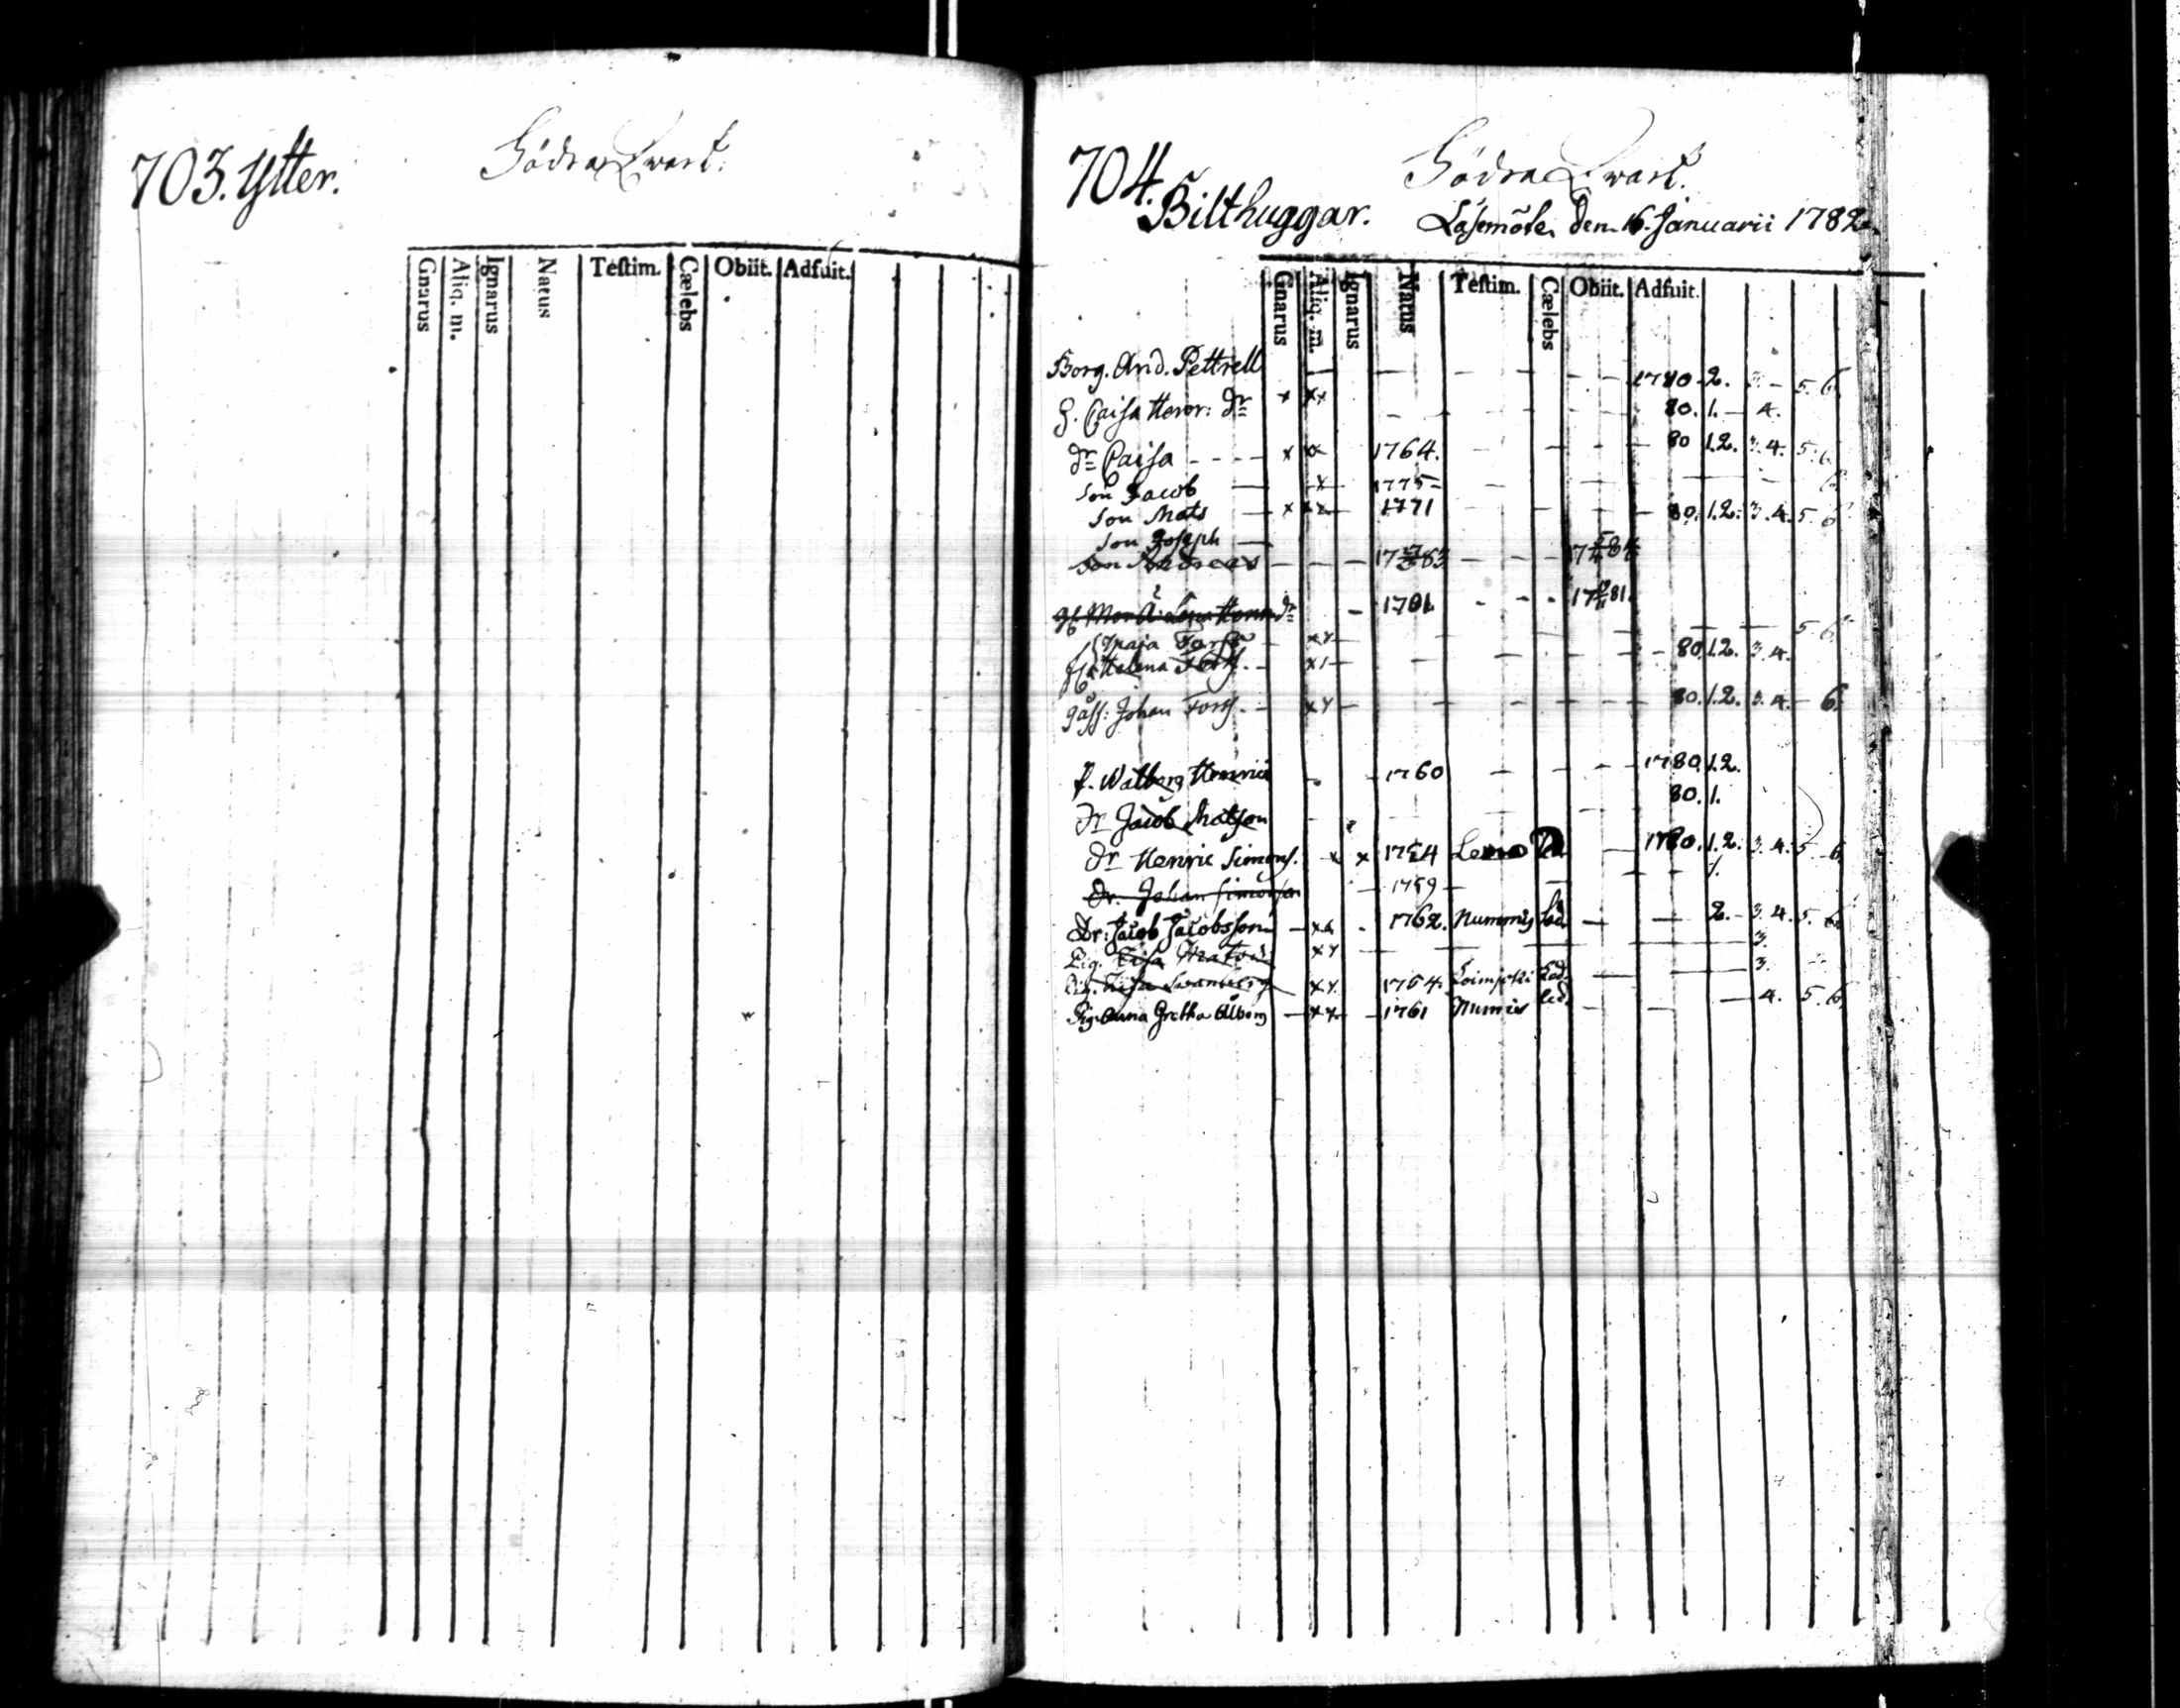 703. Ytter.
Södra Qwart.
Gnarus Aliq. m. Ignarus Natus Testim. Cælebs Obiit. Adfuit.
704. Södra Qwart.
Bilthuggar. Läsemöte den 16. Januarii 1782
Gnarus Aliq. m. Ignarus Natus Testim. Cælebs Obiit. Adfuit.
Borg. And. Pettrell 1780 2. 3. 5. 6.
H. Caisa Henr: dr x xx 80. 1. 4.
dr Caisa x xx 1764. 80 1.2. 3.4. 5.6.
Son Jacob x 1775
Son Mats x xx 1771 80. 1.2. 3.4. 5.6
Son Joseph
Son Andreas
dr 1781 81.
5.6
Helena 80 1.2. 3.4.
Johan xx 80. 1.2. 3.4. 6.
P. Walborg Henrici 1760 1780 1.2.
Dr Jacob Matson 80. 1.
Dr Henric Simons. x x 1754 Lemo 1780. 1.2. 3.4. 5. 6.
Dr. Johan Simonson 1759 1.
Dr: Jacob Jacobsson xx 1762. Nummis led. 2. 3.4. 5. 6.
Pig. Lisa xx 3.
Pig. xx 1764. Loimjoki Led. 3.
Pig. Anna Gretha Alborg xx 1761 Nummis led. 4. 5.6